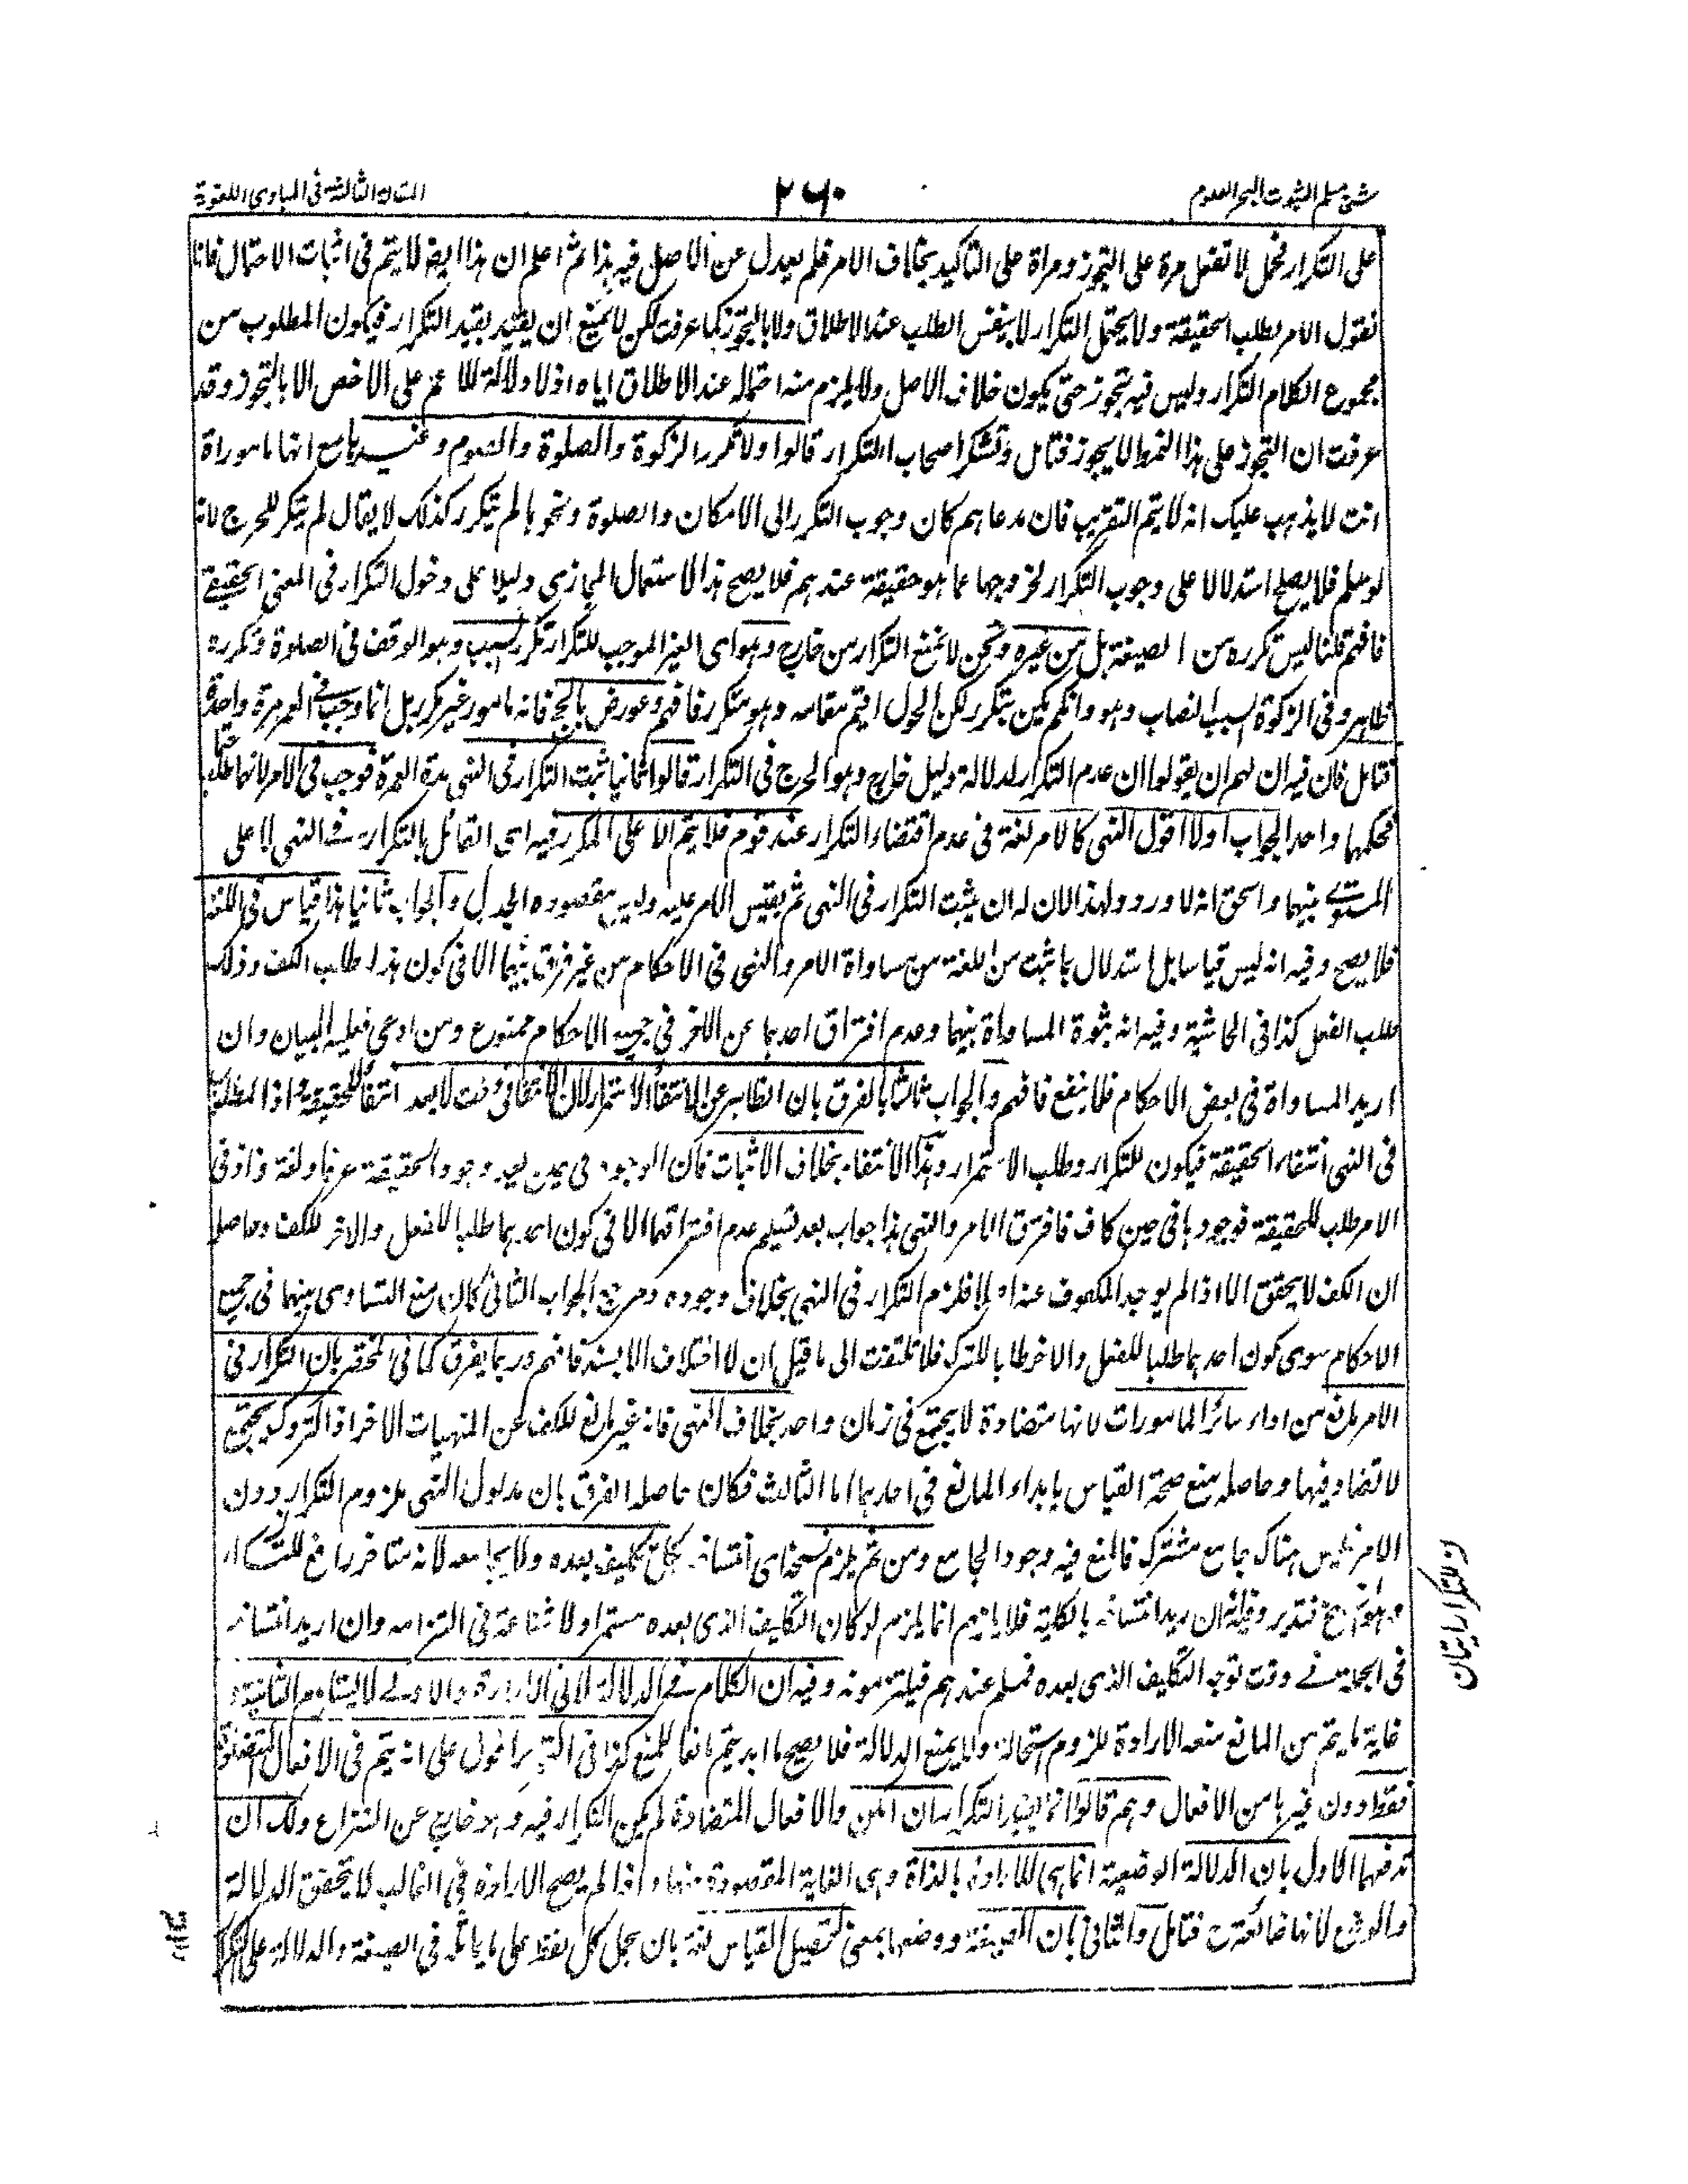 شرح مسلم الثبوت لبحر العلوم
٢٦٠
المقالة الثالثة فى المبادى اللغوية
على التكرار فحمل لا تفعل مرة على التجوز ومراة على التاكيد بخلاف الامر فلم يعدل عن الاصل فيه هذا ثم اعلم ان هذا ايضا لا يتم فى اثبات الاحتمال فانا
نقول الامر لطلب الحقيقة ولا يحتمل التكرار لا بنفس الطلب عند الاطلاق ولا بالتجوز كما عرفت لكن لا يمنع ان يقيد بقيد التكرار فيكون المطلوب من
مجموع الكلام التكرار وليس فيه تجوز حتى يكون خلاف الاصل ولا يلزم منه احتماله عند الاطلاق اياه اذ لا دلالة للاعم على الاخص الا بالتجوز وقد
عرفت ان التجوز على هذا النمط لا يجوز فتامل وتشكر اصحاب التكرار قالوا ولا تكرر الزكوة والصلوة والصوم وغيرها مع انها ماموراة
انت لا يذهب عليك انه لا يتم التقريب فان مدعاهم كان وجوب التكرر الى الامكان والصلوة ونحوها لم يتكرر كذلك لا يقال لم يتكرر للحرج لانه
لو سلم فلا يصلح استدلالا على وجوب التكرار لخروجها عما هو حقيقة عندهم فلا يصح هذا الاستعمال المجازى دليلا على دخول التكرار فى المعنى الحقيقے
فافهم قلنا ليس تكرره من الصيغة بل من غيره ونحن لا نمنع التكرار من خارج وهو اى الغير الموجب للتكرار تكرر السبب وهو الوقت فى الصلوة وتكرره
ظاهر وفى الزكوة السبب النصاب وهو وان لم يكن يتكرر لكن الحول اقيم مقامه وهو متكرر فافهم وعورض بالحج فانه مامور غير مكرر بل انما وجب فے العمر مرة واحدة
فتامل فان فيه ان لهم ان يقولوا ان عدم التكرار لدلالة دليل خارج وهو الحرج فى التكرار قالوا ثانيا ثبت التكرار فى النهى مدة العمرة فوجب فى الامر لانهما طلب
فحكمهما واحد الجواب اولا اقول النهى كالامر لغة فى عدم اقتضاء التكرار عند قوم فلا يتم الا على المكرر فيه اى القائل بالتكرار فے النهى لا على
المستوے بينهما والحق انه لا ورود لهذا لان له ان يثبت التكرار فى النهى ثم يقيس الامر عليه وليس مقصوده الجدل والجواب ثانيا هذا قياس فى اللغة
فلا يصح وفيه انه ليس قياسا بل استدلال بما ثبت من اللغة من مساواة الامر والنهى فى الاحكام من غير فرق بينهما الا فى كون هذا طلب الكف وذلك
طلب الفعل كذا فى الحاشية وفيه انه ثبوة المساواة بينهما وعدم افتراق احدهما عن الاخر فى جميع الاحكام ممنوع ومن ادعى فعليه البيان وان
اريد المساواة فى بعض الاحكام فلا ينفع فافهم والجواب ثالثا بالفرق بان الظاهر عن الانتفاء الاستمرار لان الانتفاء فى وقت لا يعد انتفاء للحقيقة واذا المطلوب
فى النهى انتفاء الحقيقة فيكون للتكرار وطلب الاستمرار وهذا الانتفاء بخلاف الاثبات فان الوجود فى حين يعد وجود الحقيقة عرفا ولغة واذ فى
الامر طلب للحقيقة فوجودها فى حين كاف فافترق الامر والنهى هذا جواب بعد تسليم عدم افتراقهما الا فى كون احدهما طلبا للفعل والاخر للكف وحاصله
ان الكف لا يتحقق الا اذا لم يوجد المكفوف عنه اصلا فلزم التكرار فى النهى بخلاف وجوده ومرجع الجواب الثانى كان منع التساوى بينهما فى جميع
الاحكام سوى كون احدهما طلبا للفعل والاخر طلبا للترك فلا تلتفت الى ما قيل ان لا اختلاف الا بسند فافهم وربما يفرق كما فى المختصر بان التكرار فى
الامر مانع من اداء سائر المامورات لانها متضادة لا يجتمع فى زمان واحد بخلاف النهى فانه غير مانع للكف عن المنهيات الاخر اذ التروك يجتمع
لا تضاد فيها وحاصله منع صحة القياس بابداء المانع فى احدهما اما الثالث فكان حاصله الفرق بان مدلول النهى ملزوم التكرار دون
الامر فليس هناك جامع مشترك فالمنع فيه وجود الجامع ومن ثم يلزم نسخه اى انتساخه بكل تكليف بعده ولا يجامعه لانه متاخر رافع للتكرار
بالكلية فلا يلزم انما يلزم لو كان التكليف الذى بعده مستمرا ولا شناعة فى التزامه وان اريد انتساخه
فى الجملة فے وقت توجه التكليف الذى بعده فمسلم عندهم فيلتزمونه وفيه ان الكلام فے الدلالة لا فى الارادة والاولے لا يستلزم الثانية
غاية ما يتم من المانع منعه الارادة للزوم استحالة ولا يمنع الدلالة فلا يصح ما ابديتم مانعا للمنع كذا فى التحرير اقول على انه يتم فى الافعال المتضادة
فقط دون غيرها من الافعال وهم قالوا التكرار ان امكن والافعال المتضادة لم يمكن التكرار فيه وهو خارج عن النزاع ولك ان
تدفعهما الاول بان الدلالة الوضعية انما هى للارادة بالذات وهى الغاية المقصودة منها واذا لم يصح الارادة فى الغالب لا يتحقق الدلالة
والوضع لانها ضائعة ح فتامل والثانى بان الصيغة ووضعها بمعنى لتحصيل القياس لغة بان يحمل كل لفظ على ما يماثله فى الصيغة والدلالة على